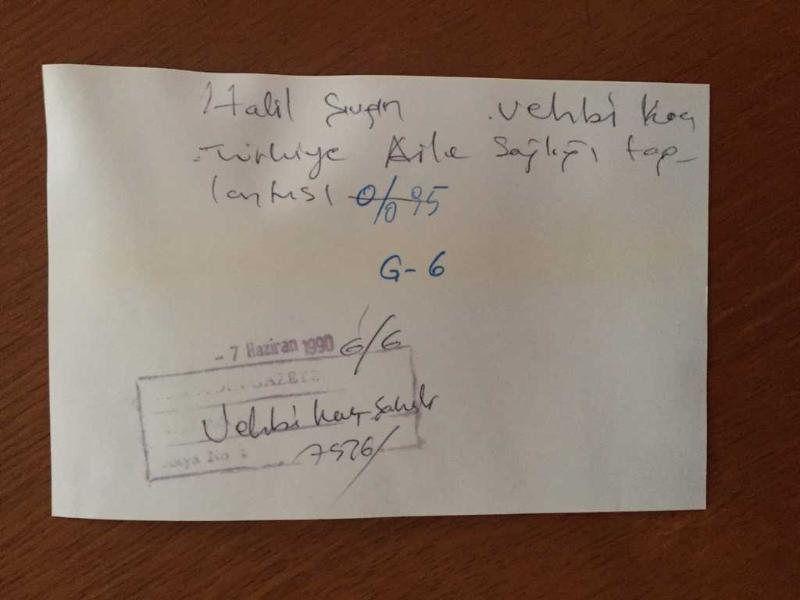 Halil Şıvgın Vehbi Koç
Türkiye Aile Sağlığı top-
lantısı % 95
G-6
- 7 Haziran 1990 6/6
GAZETE
Vehbi Koç Şahıslr
No
7526/